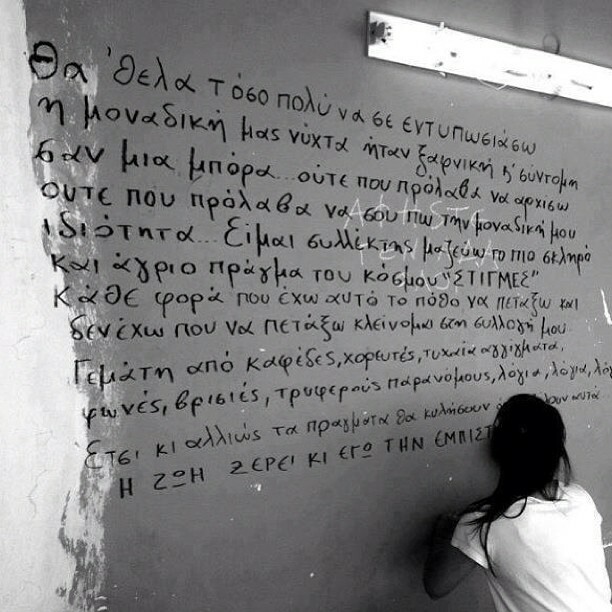 Θα 'θελα τόσο πολύ να σε εντυπωσιάσω
η μοναδική μας νύχτα ήταν ξαφνική κ' σύντομη
σαν μια μπόρα... ούτε που πρόλαβα να αρχισω
ουτε που πρόλαβα να σου πω την μοναδική μου
ιδιότητα... Είμαι συλλέκτης μαζεύω το πιο σκληρό
και άγριο πράγμα του κόσμου "ΣΤΙΓΜΕΣ"
Κάθε φορά που έχω αυτό το πόθο να πετάξω και
δεν έχω που να πετάξω κλείνομαι στη συλλογή μου
Γεμάτη από καφέδες, χορευτές, τυχαία αγγίγματα,
φωνές, βρισιές, τρυφερούς παρανόμους, λόγια, λόγια, λόγ
Ετσι κι αλλιώς τα πραγματα θα κυλήσουν αυτά
Η ΖΩΗ ΞΕΡΕΙ ΚΙ ΕΓΩ ΤΗΝ ΕΜΠΙΣΤ